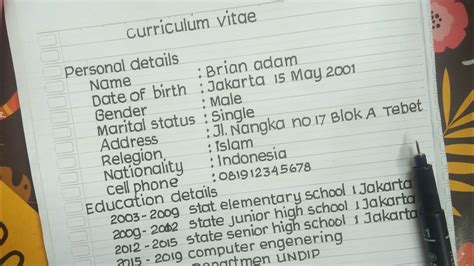 Curriculum vitae
Personal details
Name : Brian adam
Date of birth : Jakarta 15 May 2001
Gender : Male
Marital status : Single
Address : Jl. Nangka no 17 Blok A Tebet
Relegion : Islam
Nationality : Indonesia
cell phone : 081912345678
Education details
2003 - 2009 stat elementary school 1 Jakarta
2009 - 2012 state junior high school 1 Jakarta
2012 - 2015 state senior high school 1 Jakarta
2015 - 2019 computer engenering
Departmen UNDIP